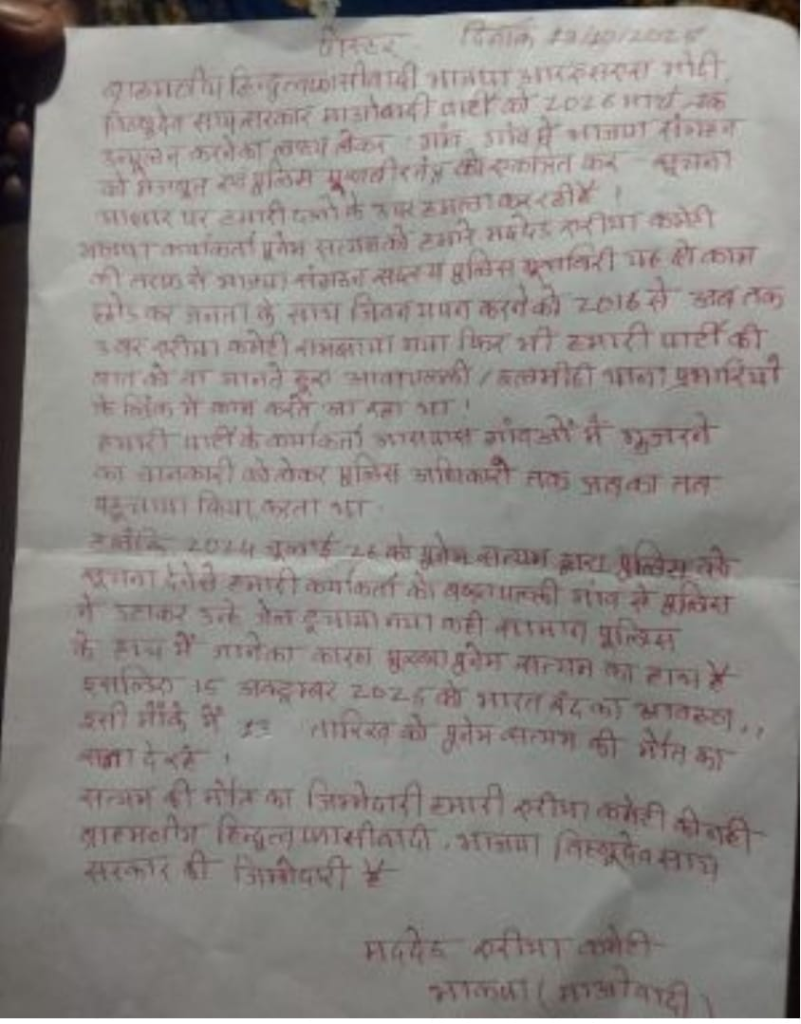 पोस्टर दिनांक
ब्राह्मणीय हिन्दुत्व फासीवादी भाजपा आरएसएस मोदी,
विष्णुदेव साय सरकार माओवादी पार्टी को 2026 मार्च तक
उन्मूलन करने का लक्ष्य लेकर गांव गांव में भाजपा संगठन
को मजबूत एवं पुलिस को एकत्रित कर सूचना
आधार पर हमारी दलों के ऊपर हमला कर रही है।
भाजपा कार्यकर्ता पुनेम सत्यम को हमारे मददेड एरीया कमेटी
की तरफ से भाजपा संगठन सदस्य पुलिस यह दो काम
छोड कर जनता के साथ जिवन यापन करने को 2016 से अब तक
एरीया कमेटी समझाया गया फिर भी हमारी पार्टी की
बात को ना मानते हुए आवापल्ली / इलमीडी थाना प्रभारियों
के लिंक में काम करते आ रहा था।
हमारी पार्टी के कार्यकर्ता आसपास गांवओं में गुजरने
का जानकारी को लेकर पुलिस अधिकारी तक
पहूचाया किया करता था.
2024 जूलाई 26 को पुनेम सत्यम द्वारा पुलिस को
सूचना देनेसे हमारी कार्यकर्ता को गांव से पुलिस
ने उठाकर उन्हे जेल गया कही सामान पुलिस
के हाथ में जानेका कारण पुनेम सत्यम का हाथ है
इसलिए 15 अक्टूम्बर 2025 को भारत बंद का
इसी मौके में तारिख को पुनेम सत्यम की मौत का
सजा दे रहे।
सत्यम की मौत का जिम्मेदारी हमारी एरीया कमेटी की नही
ब्राह्मणीय हिन्दुत्व फासीवादी. भाजपा विष्णुदेव साय
सरकार की जिम्मेदारी है
मददेड एरीया कमेटी
भाकपा (माओवादी)